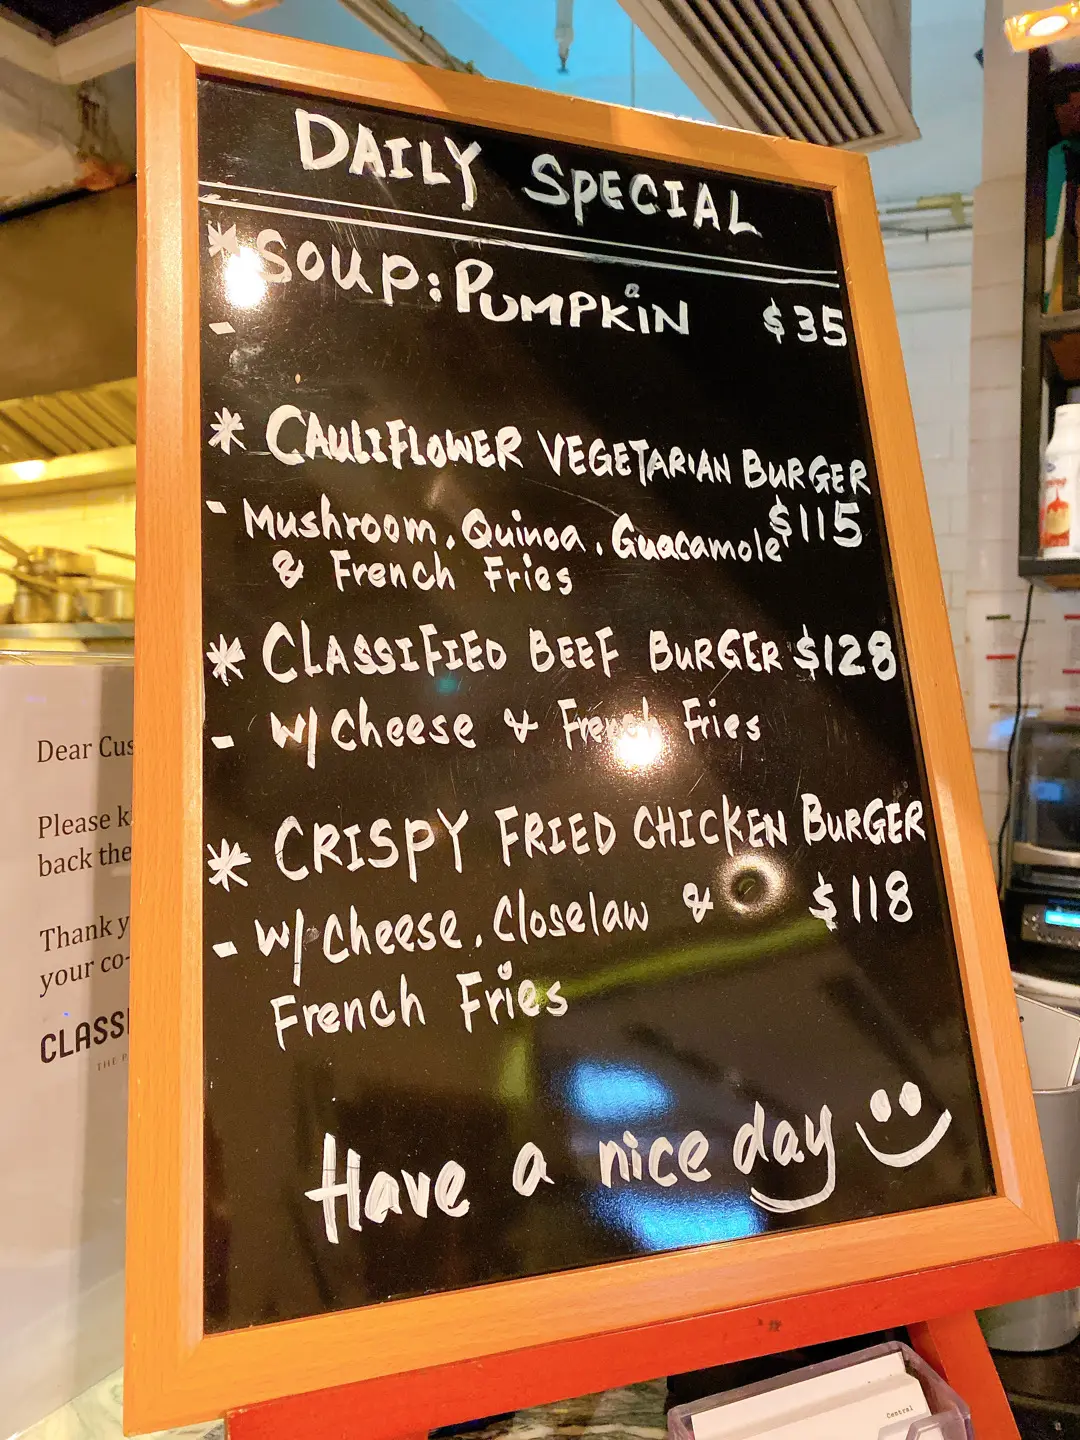 DAILY SPECIAL
* SOUP: PUMPKiN $35
-
* CAULIFLOWER VEGETARIAN BURGER
- Mushroom, Quinoa, Guacamole $115
& French Fries
* CLASSIFIED BEEF BURGER $128
- w/ Cheese & French Fries
* CRISPY FRIED CHICKEN BURGER
- w/ Cheese, Closelaw & $118
French Fries
Have a nice day
Dear Cus
Please k
back the
Thank y
your co-
CLASSI
THE P
Central